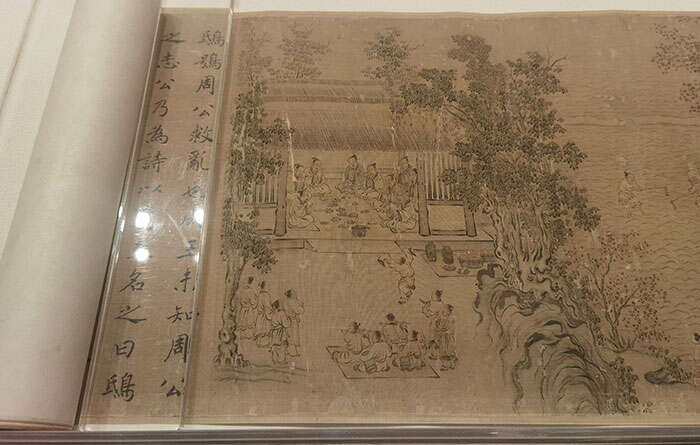 鴟鴞周公救亂也成王未知周公
之志公乃為詩以遺王名之曰鴟